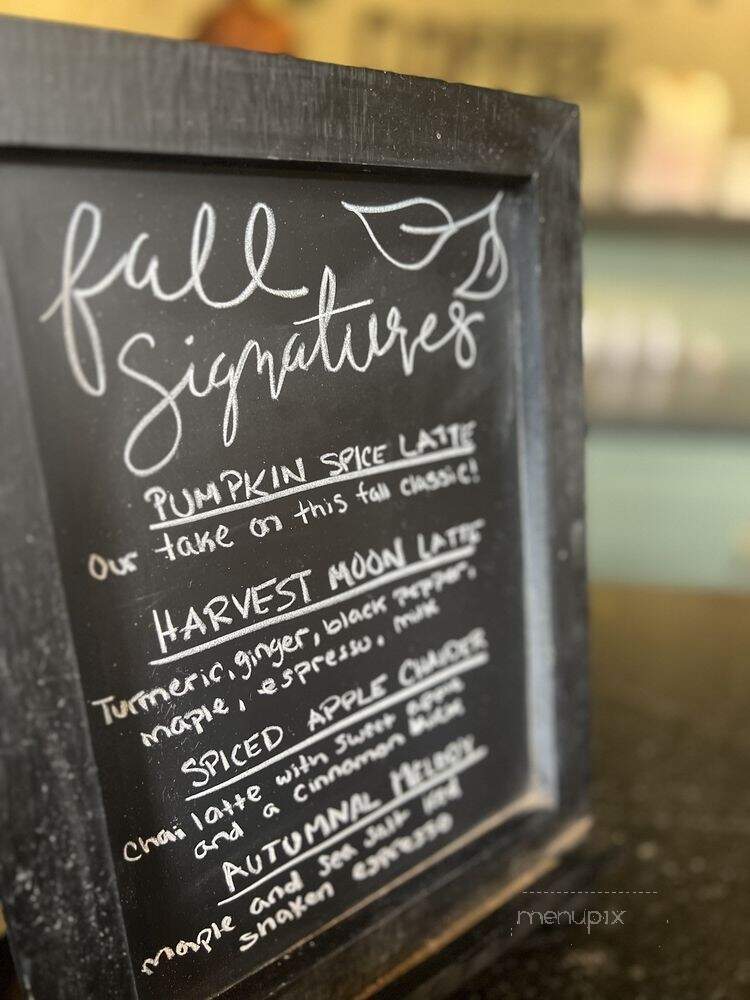 fall
signatures
PUMPKIN SPICE LATTE
our take on this fall classic!
HARVEST MOON LATTE
Turmeric, ginger, black pepper,
maple, espresso, milk
SPICED APPLE CHAIDER
Chai latte with sweet apple
and a cinnamon
AUTUMNAL MELODY
maple and sea salt iced
shaken espresso
menupix